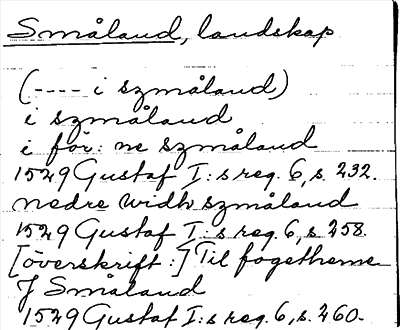 Småland, landskap
(---- i szmåland)
i szmåland
i för: ne szmåland
1529 Gustaf I:s reg. 6, s. 232.
nedre widh szmåland
1529 Gustaf I:s reg. 6, s. 258.
[överskrift:] Til fogetherne
J Småland
1529 Gustaf I:s reg. 6, s. 260.